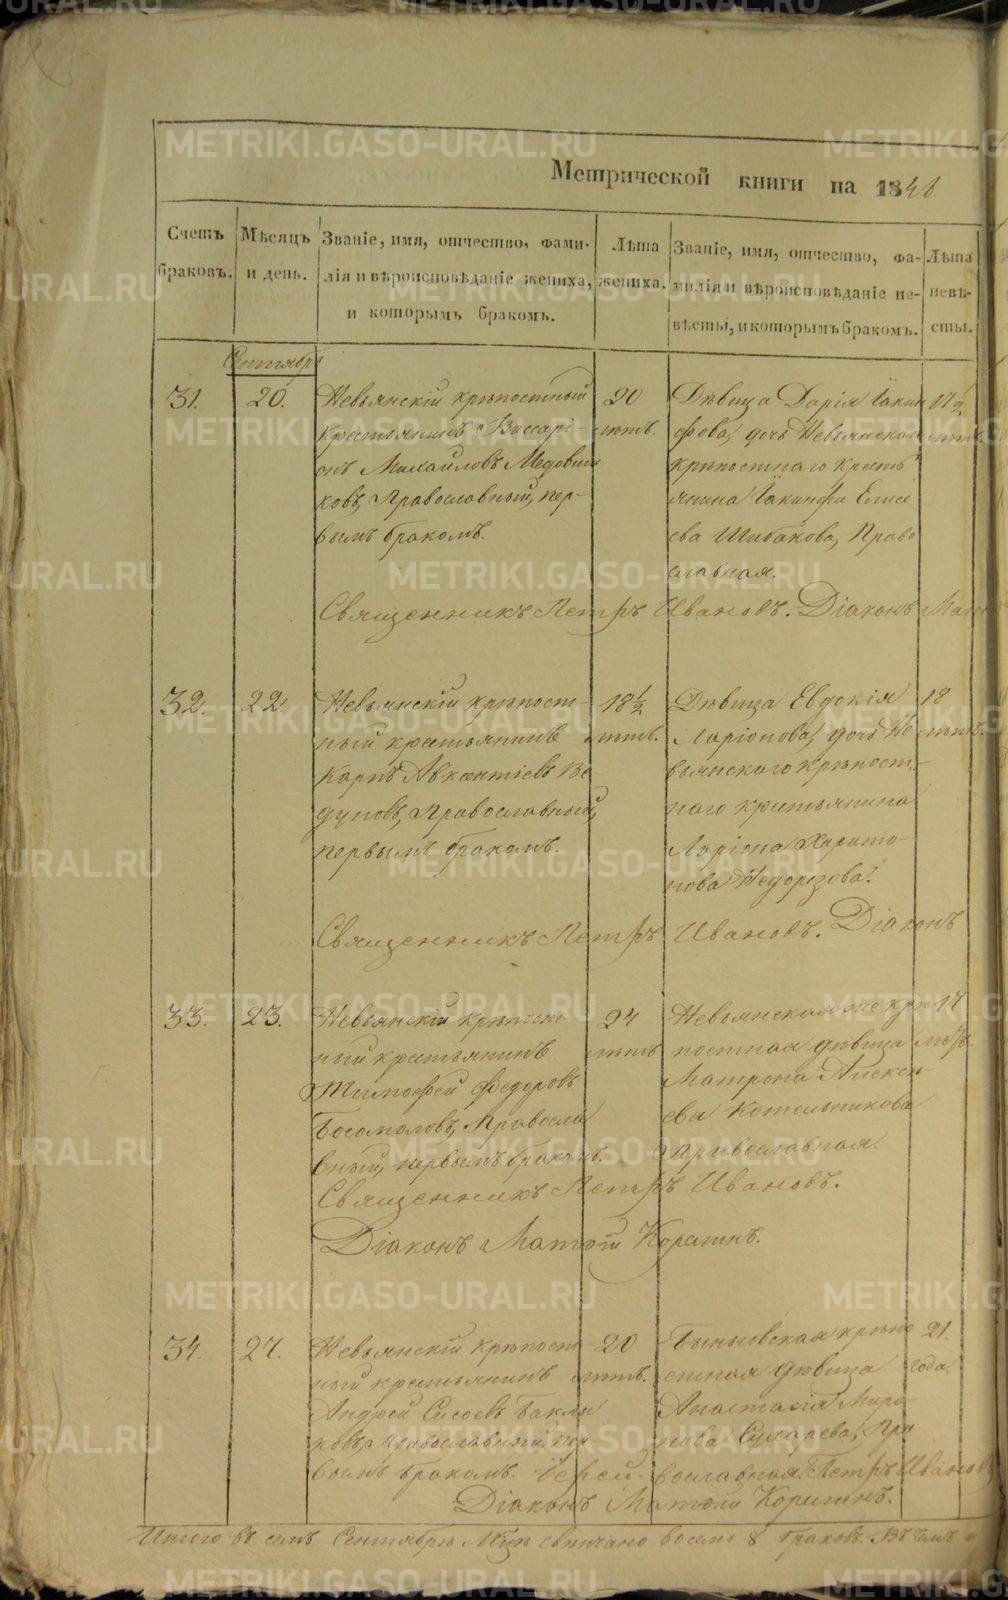 Метрической книги на 1848.
Счетъ браковъ.
Мѣсяцъ и день.
Званіе, имя, отчество, фами-
лія и вѣроисповѣданіе жениха,
и которымъ бракомъ.
Лѣта
жениха.
Званіе, имя, отчество, фа-
милія и вѣроисповѣданіе не-
вѣсты, и которымъ бракомъ.
Лѣта
невѣ-
сты.
Сентябрь
31.
20.
Невьянскій крѣпостный
крестьянинъ Виссарі-
онъ Михайловъ Медовщи
ковъ, Православный, пер-
вымъ бракомъ.
20
лѣтъ.
Дѣвица Дарія Іакин
фова, дочь Невьянскаго
крѣпостнаго кресть
янина Іакинфа Елисе
ева Шибакова, Право
славная.
17 1/2
лѣтъ.
Священникъ Петръ Ивановъ. Діаконъ
32.
22.
Невьянскій крѣпост-
ный крестьянинъ
Карпъ Авксентіевъ Ве
дуновъ, Православный,
первымъ бракомъ.
18 1/2
лѣтъ.
Дѣвица Евдокія
Ларіонова, дочь Не
вьянскаго крѣпост-
наго крестьянина
Ларіона Харито-
нова Недорезова.
18
лѣтъ.
Священникъ Петръ Ивановъ. Діаконъ
33.
23.
Невьянскій крѣпост-
ный крестьянинъ
Тимофей Федоровъ
Богомоловъ, Правосла
вный, первымъ бракомъ.
24
лѣтъ
Невьянская же крѣ
постная дѣвица
Матрона Алексѣ-
ева Котельникова
Православная.
17
лѣтъ.
Священникъ Петръ Ивановъ.
Діаконъ Матѳій
34.
27.
Невьянскій крѣпост
ный крестьянинъ
Андрей Сысоевъ
Православный, пер
вымъ бракомъ.
20
лѣтъ.
Быньговская крѣпо
стная дѣвица
Анастасія Миро-
нова Сухарева, Пра
вославная.
21.
года.
Іерей Петръ Ивановъ
Діаконъ Матѳій
Итого въ семъ Сентябрѣ Мцѣ свѣнчано восемь 8 браковъ.
METRIKI.GASO-URAL.RU